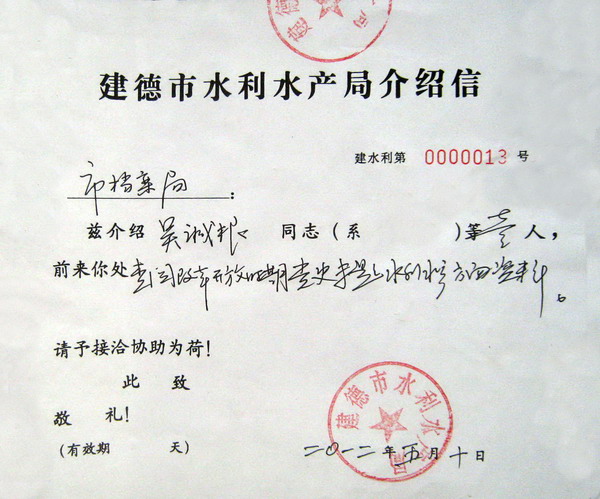 建德市水利水产局介绍信
建水利第 0000013 号
市档案局：
兹介绍 吴诚根 同志（系 ）等壹人，
前来你处查阅改革开放时期 水利水产方面资料。
请予接洽协助为荷！
此致
敬礼！
(有效期 天)
二〇一二年五月十日
建德市水利水产局